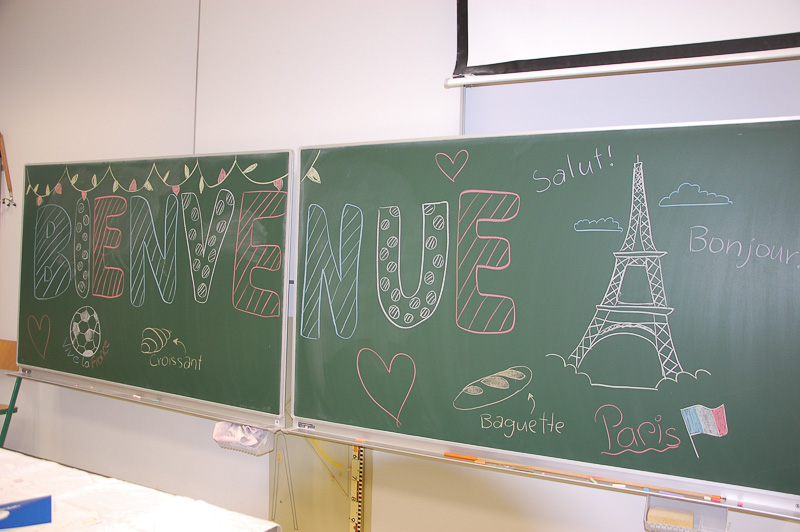 BIENVENUE
Salut!
Bonjour
Vive la France
Croissant
Baguette
Paris